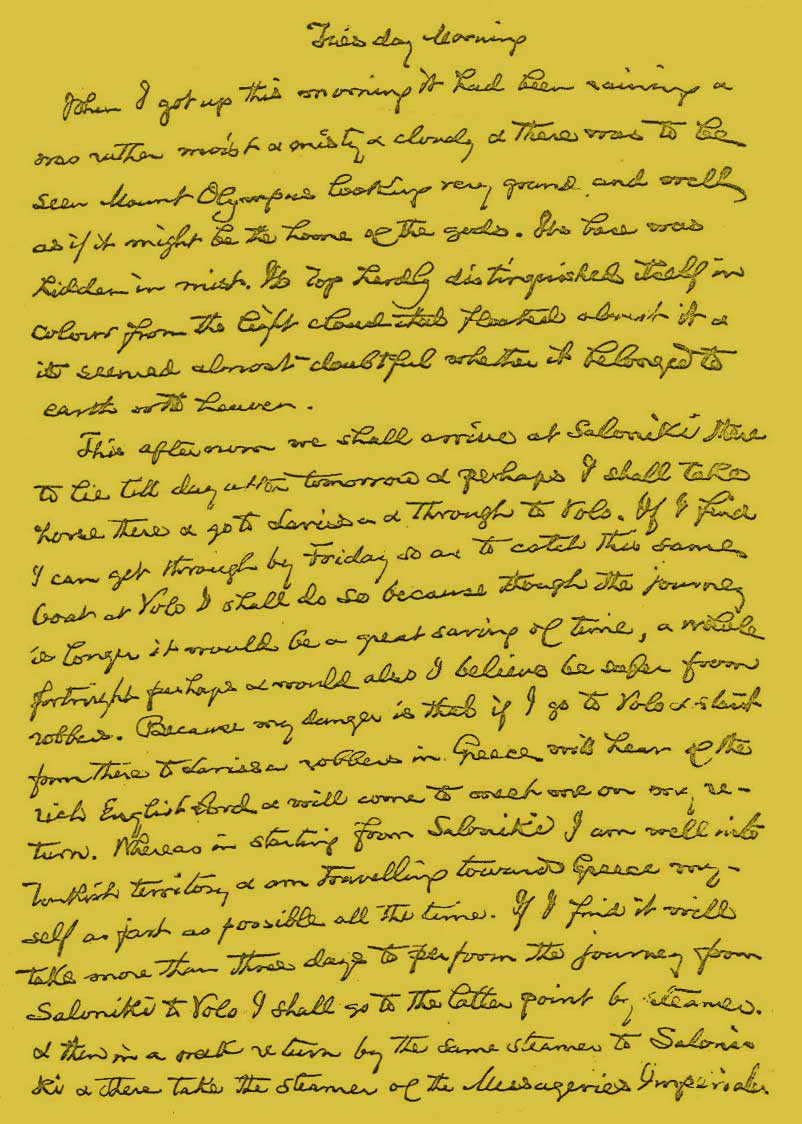 Tuesday Morning
When I got up this morning it had been raining &
was rather moist & misty & cloudy & there was to be
seen Mount Olympus looking very grand and well
as if it might be the home of the gods. Its base was
hidden in mist. Its top hardly distinguished itself in
colour from the light cloud that floated about it &
it seemed almost doubtful whether it belonged to
earth or to heaven.
This afternoon we shall arrive at Saloniki there
to lie till day after tomorrow & perhaps I shall take
horse there & go to Larissa & through to Volo. If I find
I can get through by Friday so as to catch this same
boat at Volo I shall do so because though the journey
is longer it would be a great saving of time, a whole
fortnight perhaps & would also I believe be safer from
robbers. Because my danger is that if I go to Volo & start
from there to Larissa robbers in Greece will hear of the
rich English Lord & will come to meet me on my re-
turn. Whereas in starting from Saloniki I am well into
Turkish territory & am travelling toward Greece my-
self as fast as possible all the time. If I find it will
take more than three days to perform the journey from
Saloniki to Volo I shall go to the latter point by steamer.
& then in a week return by the same steamer to Saloni
ki & there take the steamer of the Messageries Imperiales